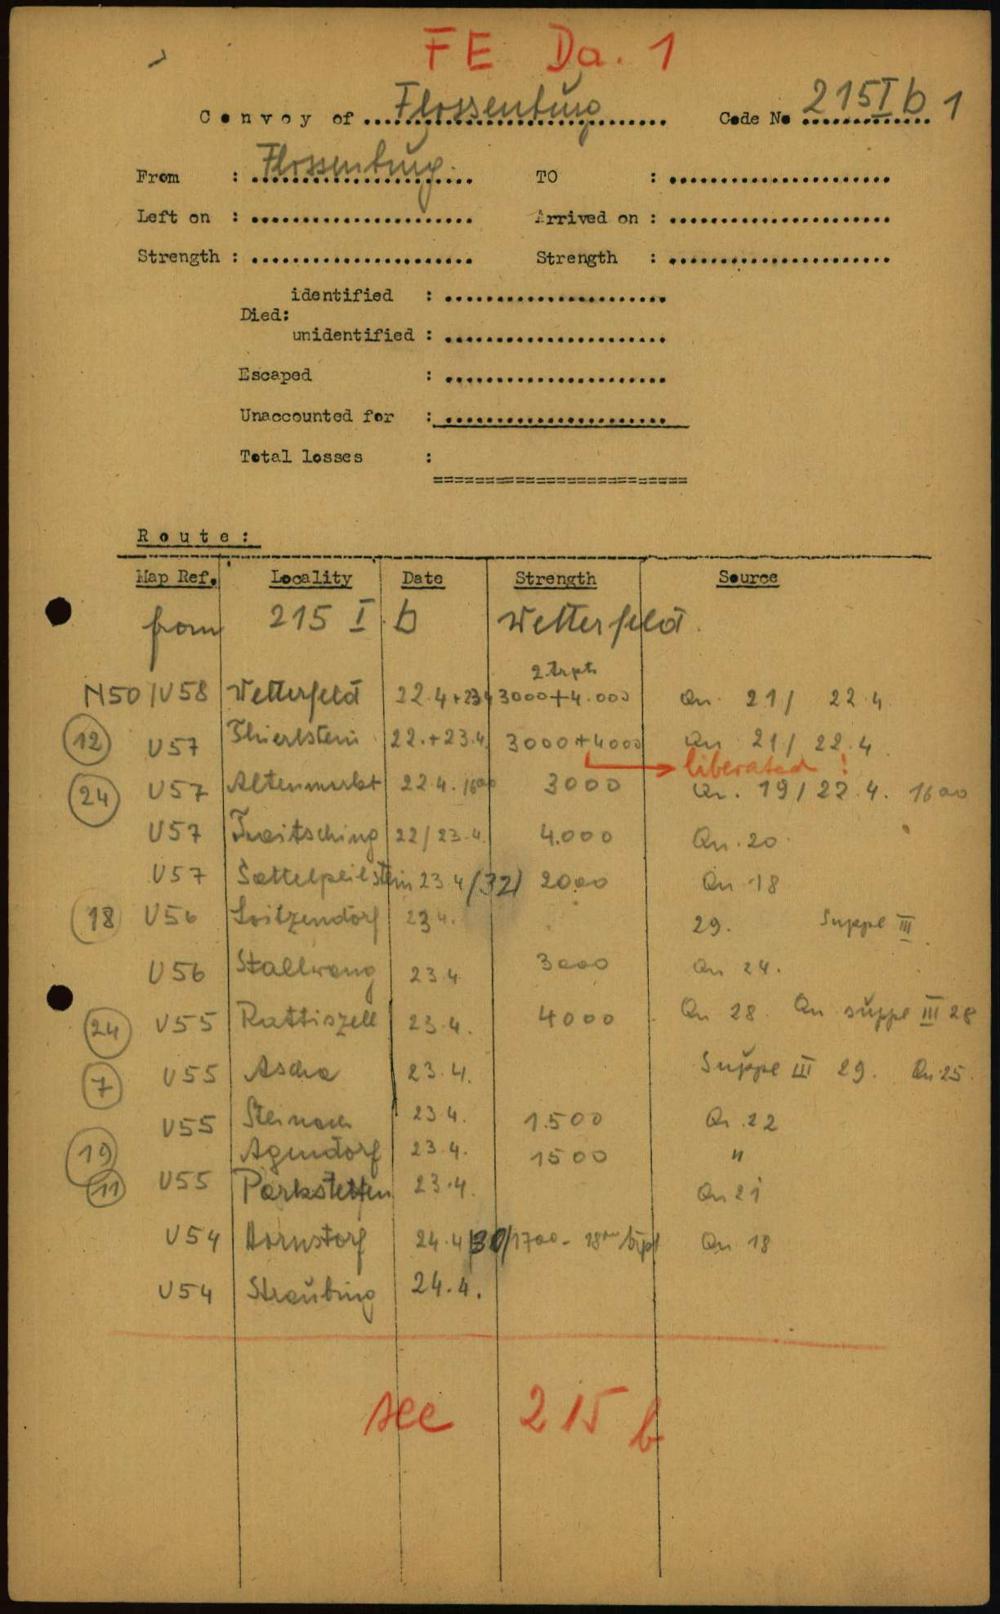 FE Da. 1
Convoy of Flossenbürg Code No 215 I b 1
From : Flossenbürg. TO :
Left on : Arrived on :
Strength : Strength :
identified :
Died:
unidentified :
Escaped :
Unaccounted for :
Total losses :
Route:
Map Ref. Locality Date Strength Source
from 215 I b Wetterfeld.
2 trpts
N50/U58 Wetterfeld 22.4+23.4 3000+4.000 Qn. 21/ 22.4
12 U57 Thierlstein 22.+23.4. 3000+4000 Qn 21/ 22.4
liberated !
24 U57 Altenmarkt 22.4. 1600 3000 Qn. 19/22.4. 1600
U57 Traitsching 22/23.4. 4.000 Qn.20.
U57 Sattelpeilstein 23 4 /32/ 2000 Qn 18
18 U56 Loitzendorf 23 4. 29. Suppl III
U56 Stallwang 23.4. 3000 Qn 24.
24 U55 Rattiszell 23.4. 4000 Qn 28. Qn suppl III 28
7 U55 Ascha 23.4. Suppl III 29. Qn 25.
U55 Steinach 23 4. 1.500 Qn.22
19 Agendorf 23.4. 1500 "
11 U55 Parkstetten 23.4. Qn 21
U54 Hornstorf 24.4 /30/ 1700- Qn 18
U54 Straubing 24.4.
see 215 b